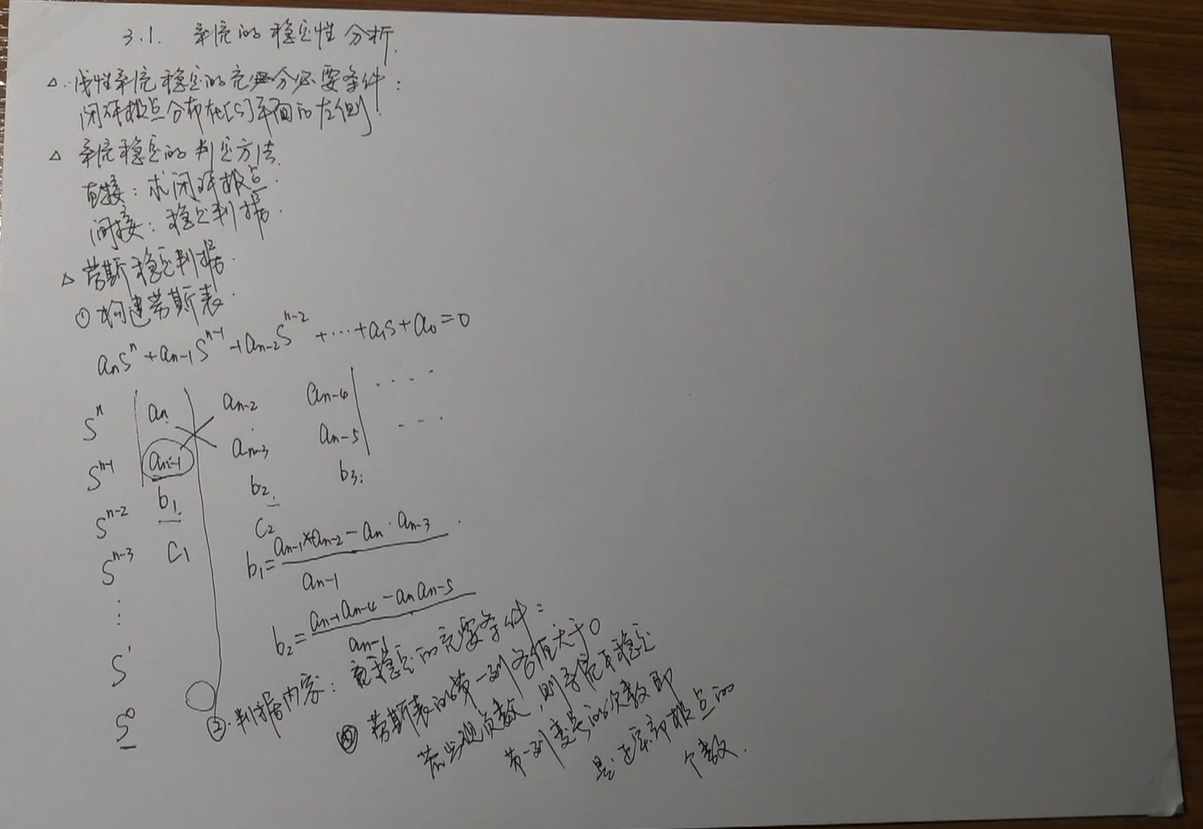 3.1. 系统的稳定性分析.
△. 线性系统稳定的充分必要条件:
闭环极点分布在[S]平面的左侧.
△ 系统稳定的判定方法.
直接: 求闭环极点.
间接: 稳定判据.
△ 劳斯稳定判据.
① 构建劳斯表.
aₙsⁿ + aₙ₋₁sⁿ⁻¹ + aₙ₋₂sⁿ⁻² + ⋯ + a₁s + a₀ = 0
sⁿ aₙ aₙ₋₂ aₙ₋₄ ····
sⁿ⁻¹ aₙ₋₁ aₙ₋₃ aₙ₋₅ ---
sⁿ⁻² b₁ b₂ b₃:
sⁿ⁻³ c₁ c₂
⋮
s¹
s⁰
b₁ = (aₙ₋₁×aₙ₋₂ − aₙ·aₙ₋₃) / aₙ₋₁
b₂ = (aₙ₋₁aₙ₋₄ − aₙaₙ₋₅) / aₙ₋₁
②. 判据内容: 稳定的充要条件:
劳斯表的第一列各值大于0
若出现负数, 则系统不稳定
第一列变号的次数即
是正实部极点的
个数.